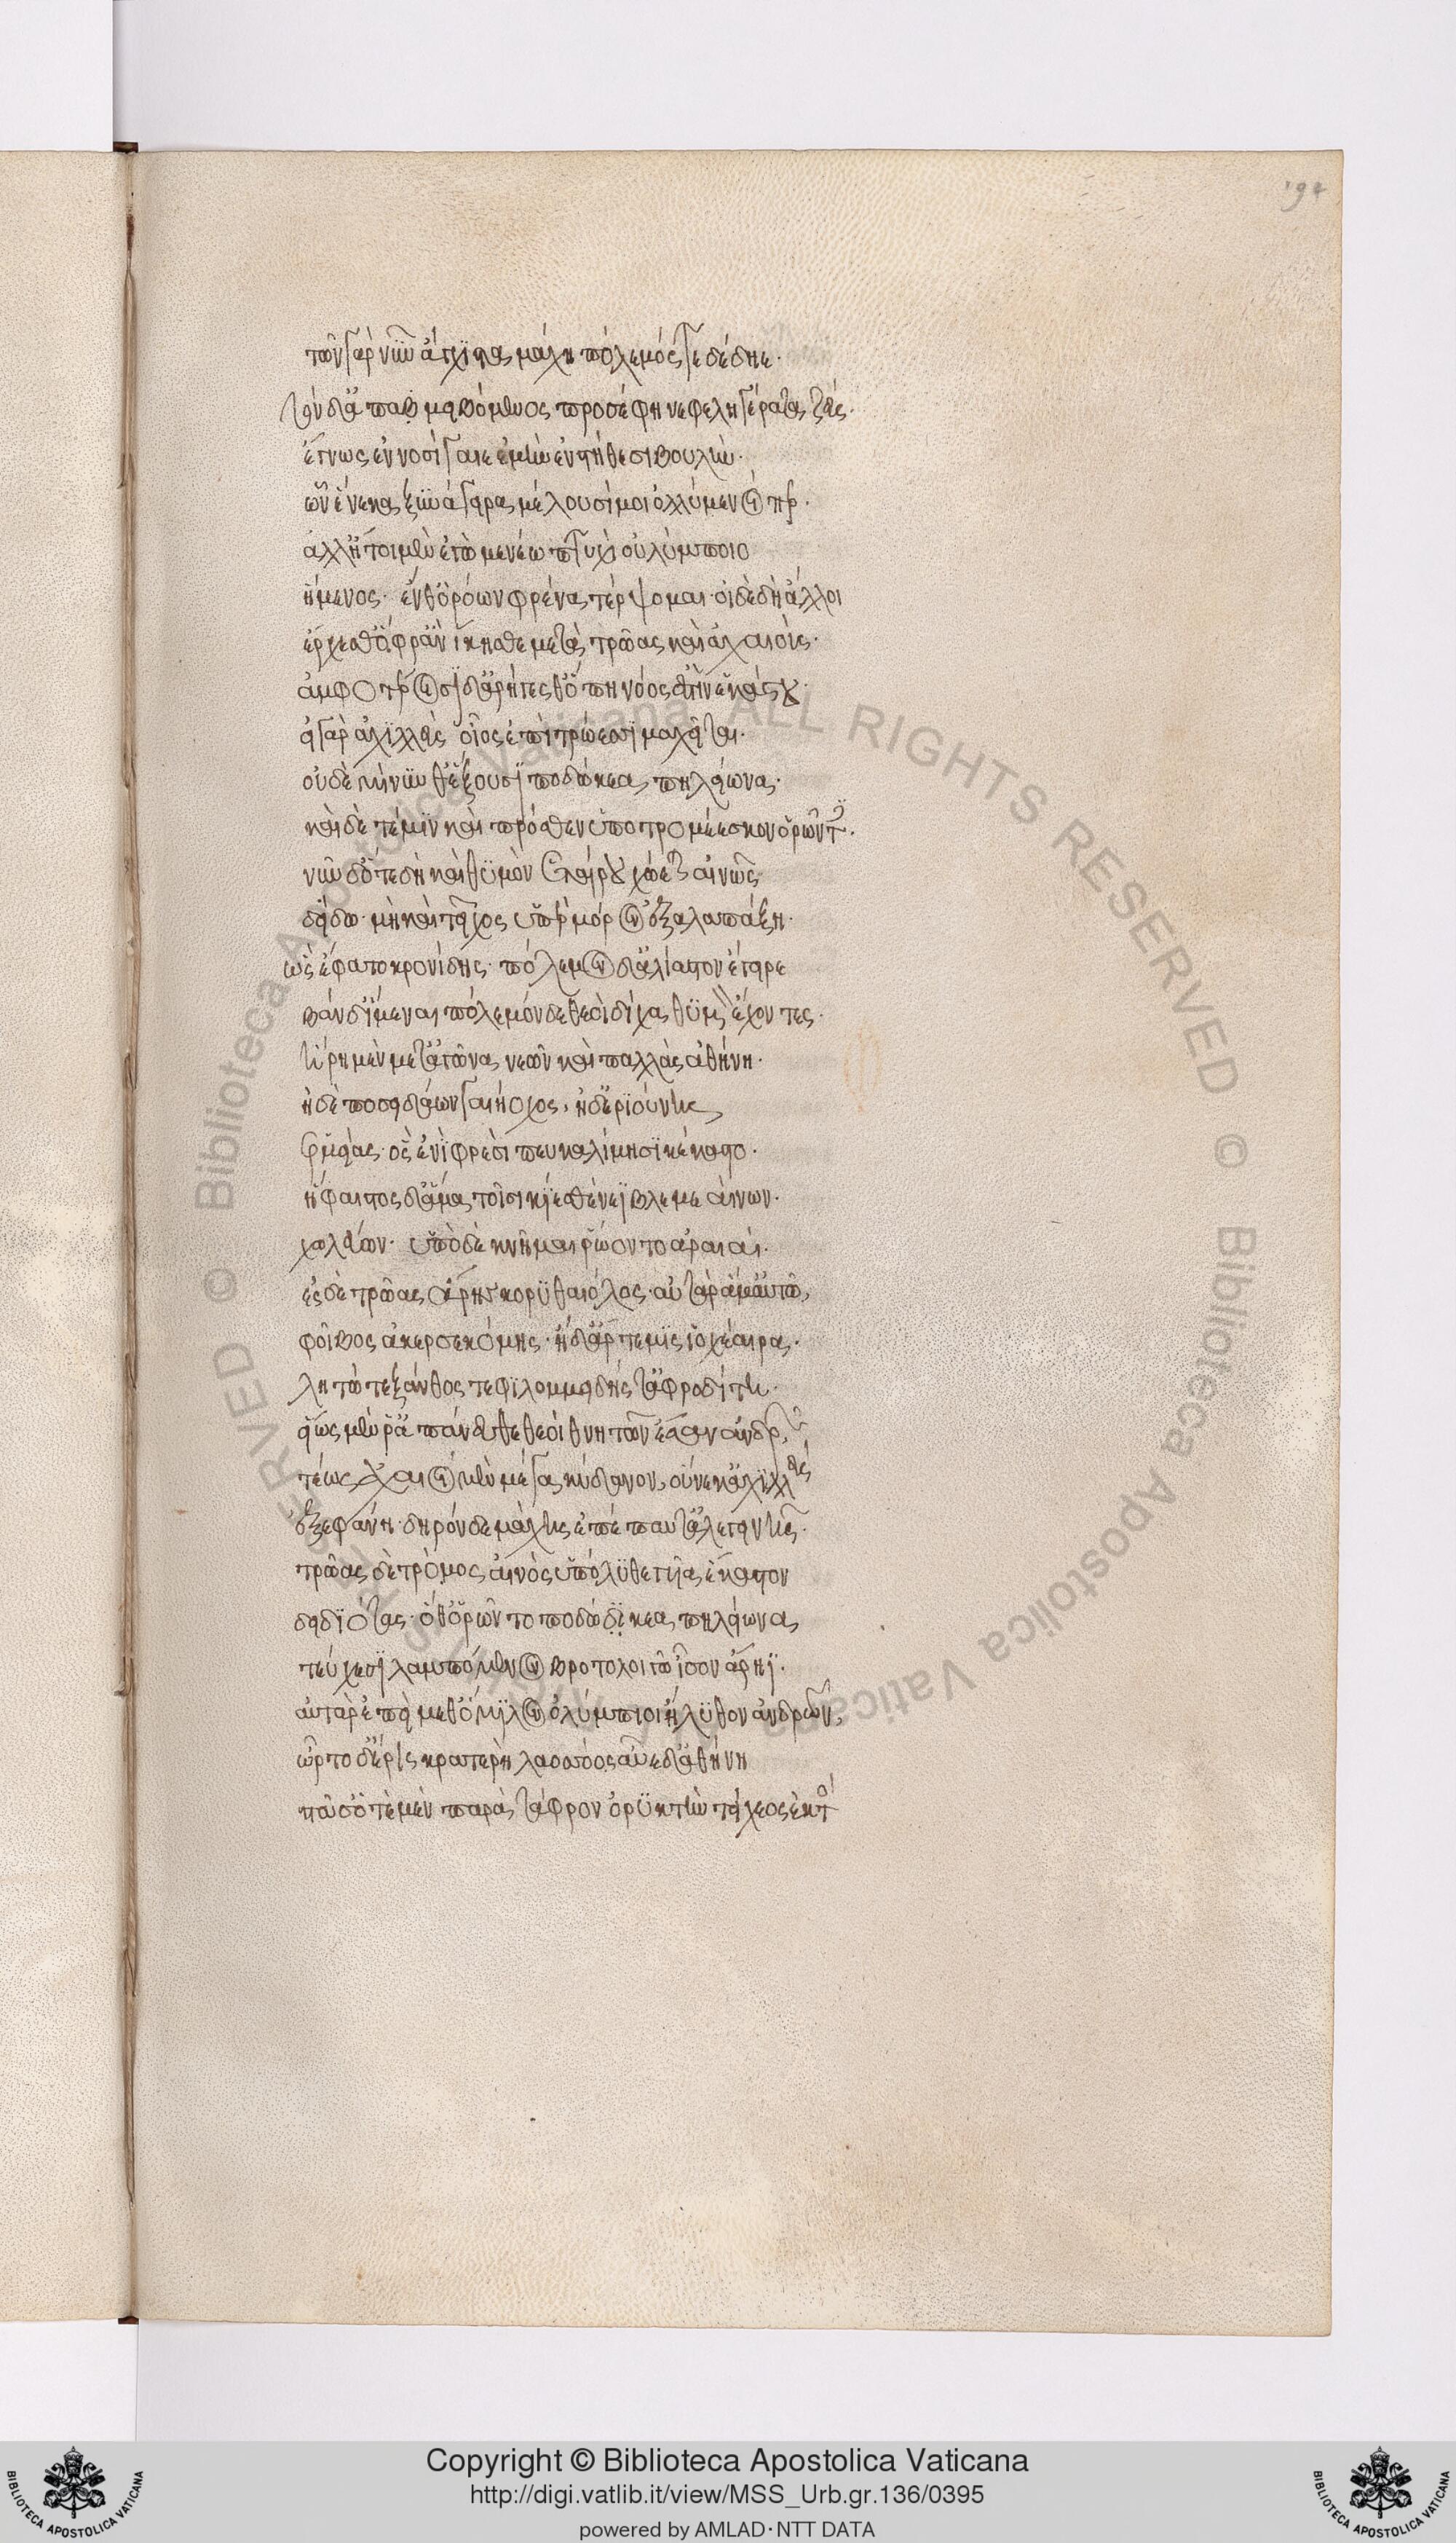 194
τῶν γὰρ νῦν ἄγχιστα μάχη πόλεμός τε δέδηε·
τὸν δ' ἀπαμειβόμενος προσέφη νεφεληγερέτα ζεύς·
ἔγνως ἐννοσίγαιε ἐμὴν ἐν στήθεσι βουλήν·
ὧν ἕνεκα ξυνάγειρα μέλουσί μοι ὀλλύμενοί περ·
ἀλλ' ἤτοι μὲν ἐγὼ μενέω πτυχὶ οὐλύμποιο
ἥμενος· ἔνθ' ὁρόων φρένα τέρψομαι· οἱ δὲ δὴ ἄλλοι
ἔρχεσθ' ὄφρ' ἂν ἵκησθε μετὰ τρῶας καὶ ἀχαιούς·
ἀμφοτέροισι δ' ἀρήγεθ' ὅπη νόος ἐστὶν ἑκάστου·
εἰ γὰρ ἀχιλλεὺς οἶος ἐπὶ τρώεσσι μαχεῖται·
οὐδὲ μίνυνθ' ἕξουσι ποδώκεα πηλείωνα·
καὶ δέ τέ μιν καὶ πρόσθεν ὑποτρομέεσκον ὁρῶντες·
νῦν δ' ὅτε δὴ καὶ θυμὸν ἑταίρου χώεται αἰνῶς
δείδω μὴ καὶ τεῖχος ὑπὲρ μόρον ἐξαλαπάξη·
ὣς ἔφατο κρονίδης· πόλεμον δ' ἀλίαστον ἔγειρε
βὰν δ' ἴμεναι πόλεμόνδε θεοὶ δίχα θυμὸν ἔχοντες·
ἥρη μὲν μετ' ἀγῶνα νεῶν καὶ παλλὰς ἀθήνη·
ἠδὲ ποσειδάων γαιήοχος, ἠδ' ἐριούνης
ἑρμείας· ὃς ἐνὶ φρεσὶ πευκαλίμησι κέκαστο·
ἥφαιστος δ' ἅμα τοῖσι κίε σθένεϊ βλεμεαίνων·
χωλεύων· ὑπὸ δὲ κνῆμαι ῥώοντο ἀραιαί·
ἐς δὲ τρῶας ἄρης κορυθαιόλος· αὐτὰρ ἅμ' αὐτῶ,
φοῖβος ἀκερσεκόμης· ἠδ' ἄρτεμις ἰοχέαιρα·
λητώ τε ξάνθος τε φιλομμειδής τ' ἀφροδίτη·
εἵως μέν ῥ' ἀπάνευθε θεοὶ θνητῶν ἔσαν ἀνδρῶν,
τέως ἀχαιοὶ μὲν μέγα κύδανον, οὕνεκ' ἀχιλλεὺς
ἐξεφάνη· δηρὸν δὲ μάχης ἐπέπαυτ' ἀλεγεινῆς·
τρῶας δὲ τρόμος αἰνὸς ὑπόλυθε γυῖα ἕκαστον
δειδιότας· ὅθ' ὁρῶντο ποδώδικεα πηλείωνα
τεύχεσι λαμπόμενον βροτολοιγῶ ἶσον ἄρηϊ·
αὐτὰρ ἐπεὶ μεθ' ὅμιλον ὀλύμπιοι ἤλυθον ἀνδρῶν,
ὦρτο δ' ἔρις κρατερὴ λαοσσόος αὖε δ' ἀθήνη
στᾶσ' ὁτὲ μὲν παρὰ τάφρον ὀρυκτὴν τείχεος ἐκτός
Copyright © Biblioteca Apostolica Vaticana
http://digi.vatlib.it/view/MSS_Urb.gr.136/0395
powered by AMLAD·NTT DATA